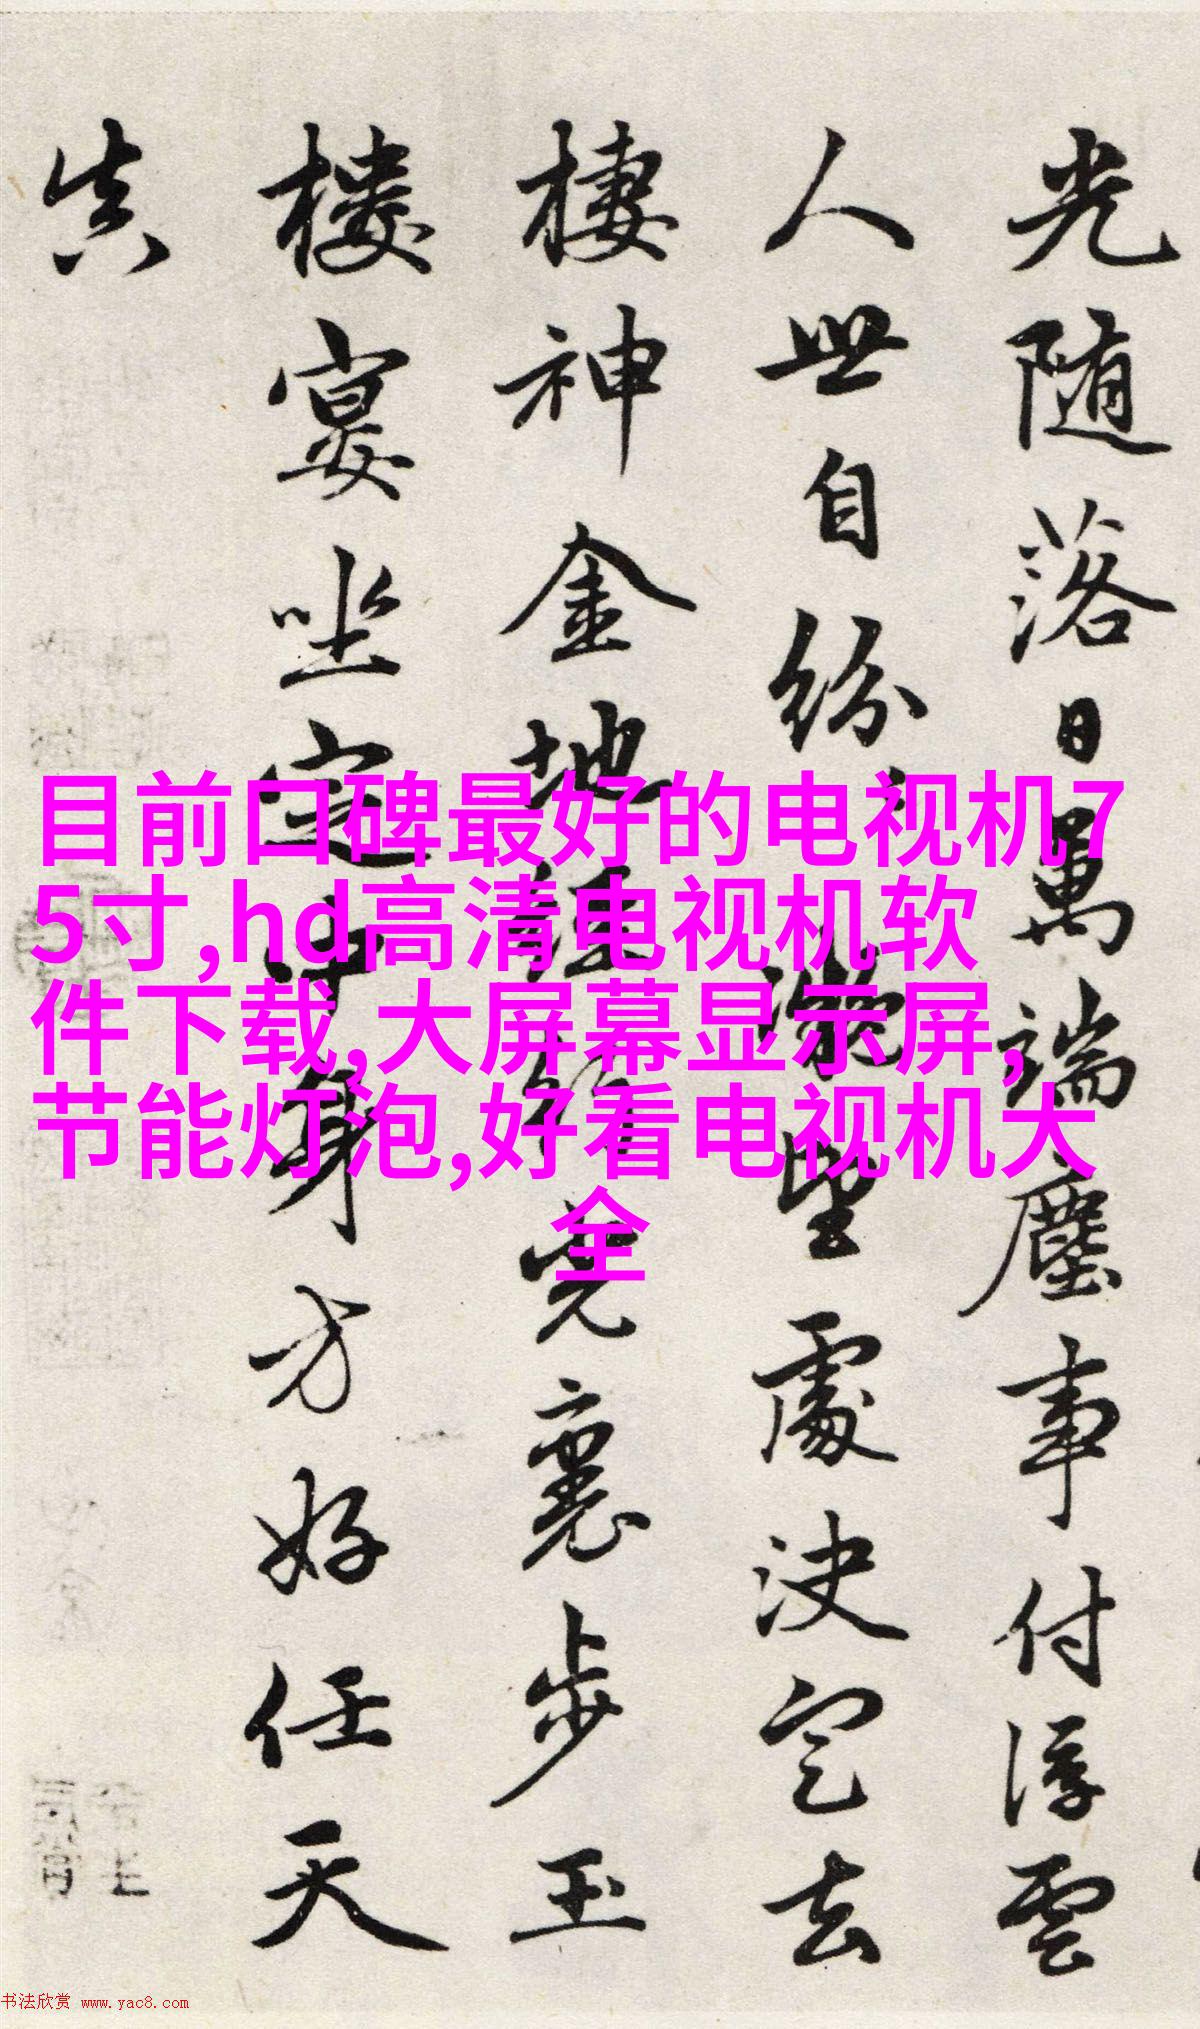 光随落日萬端塵事付浮雲
人世自紛凝望處決定去
棲神金地經行覺裏步玉
樓宴坐定中身方好任天
真
目前口碑最好的电视机7
5寸,hd高清电视机软
件下载,大屏幕显示屏,
节能灯泡,好看电视机大
全
书法欣赏 www.yac8.com